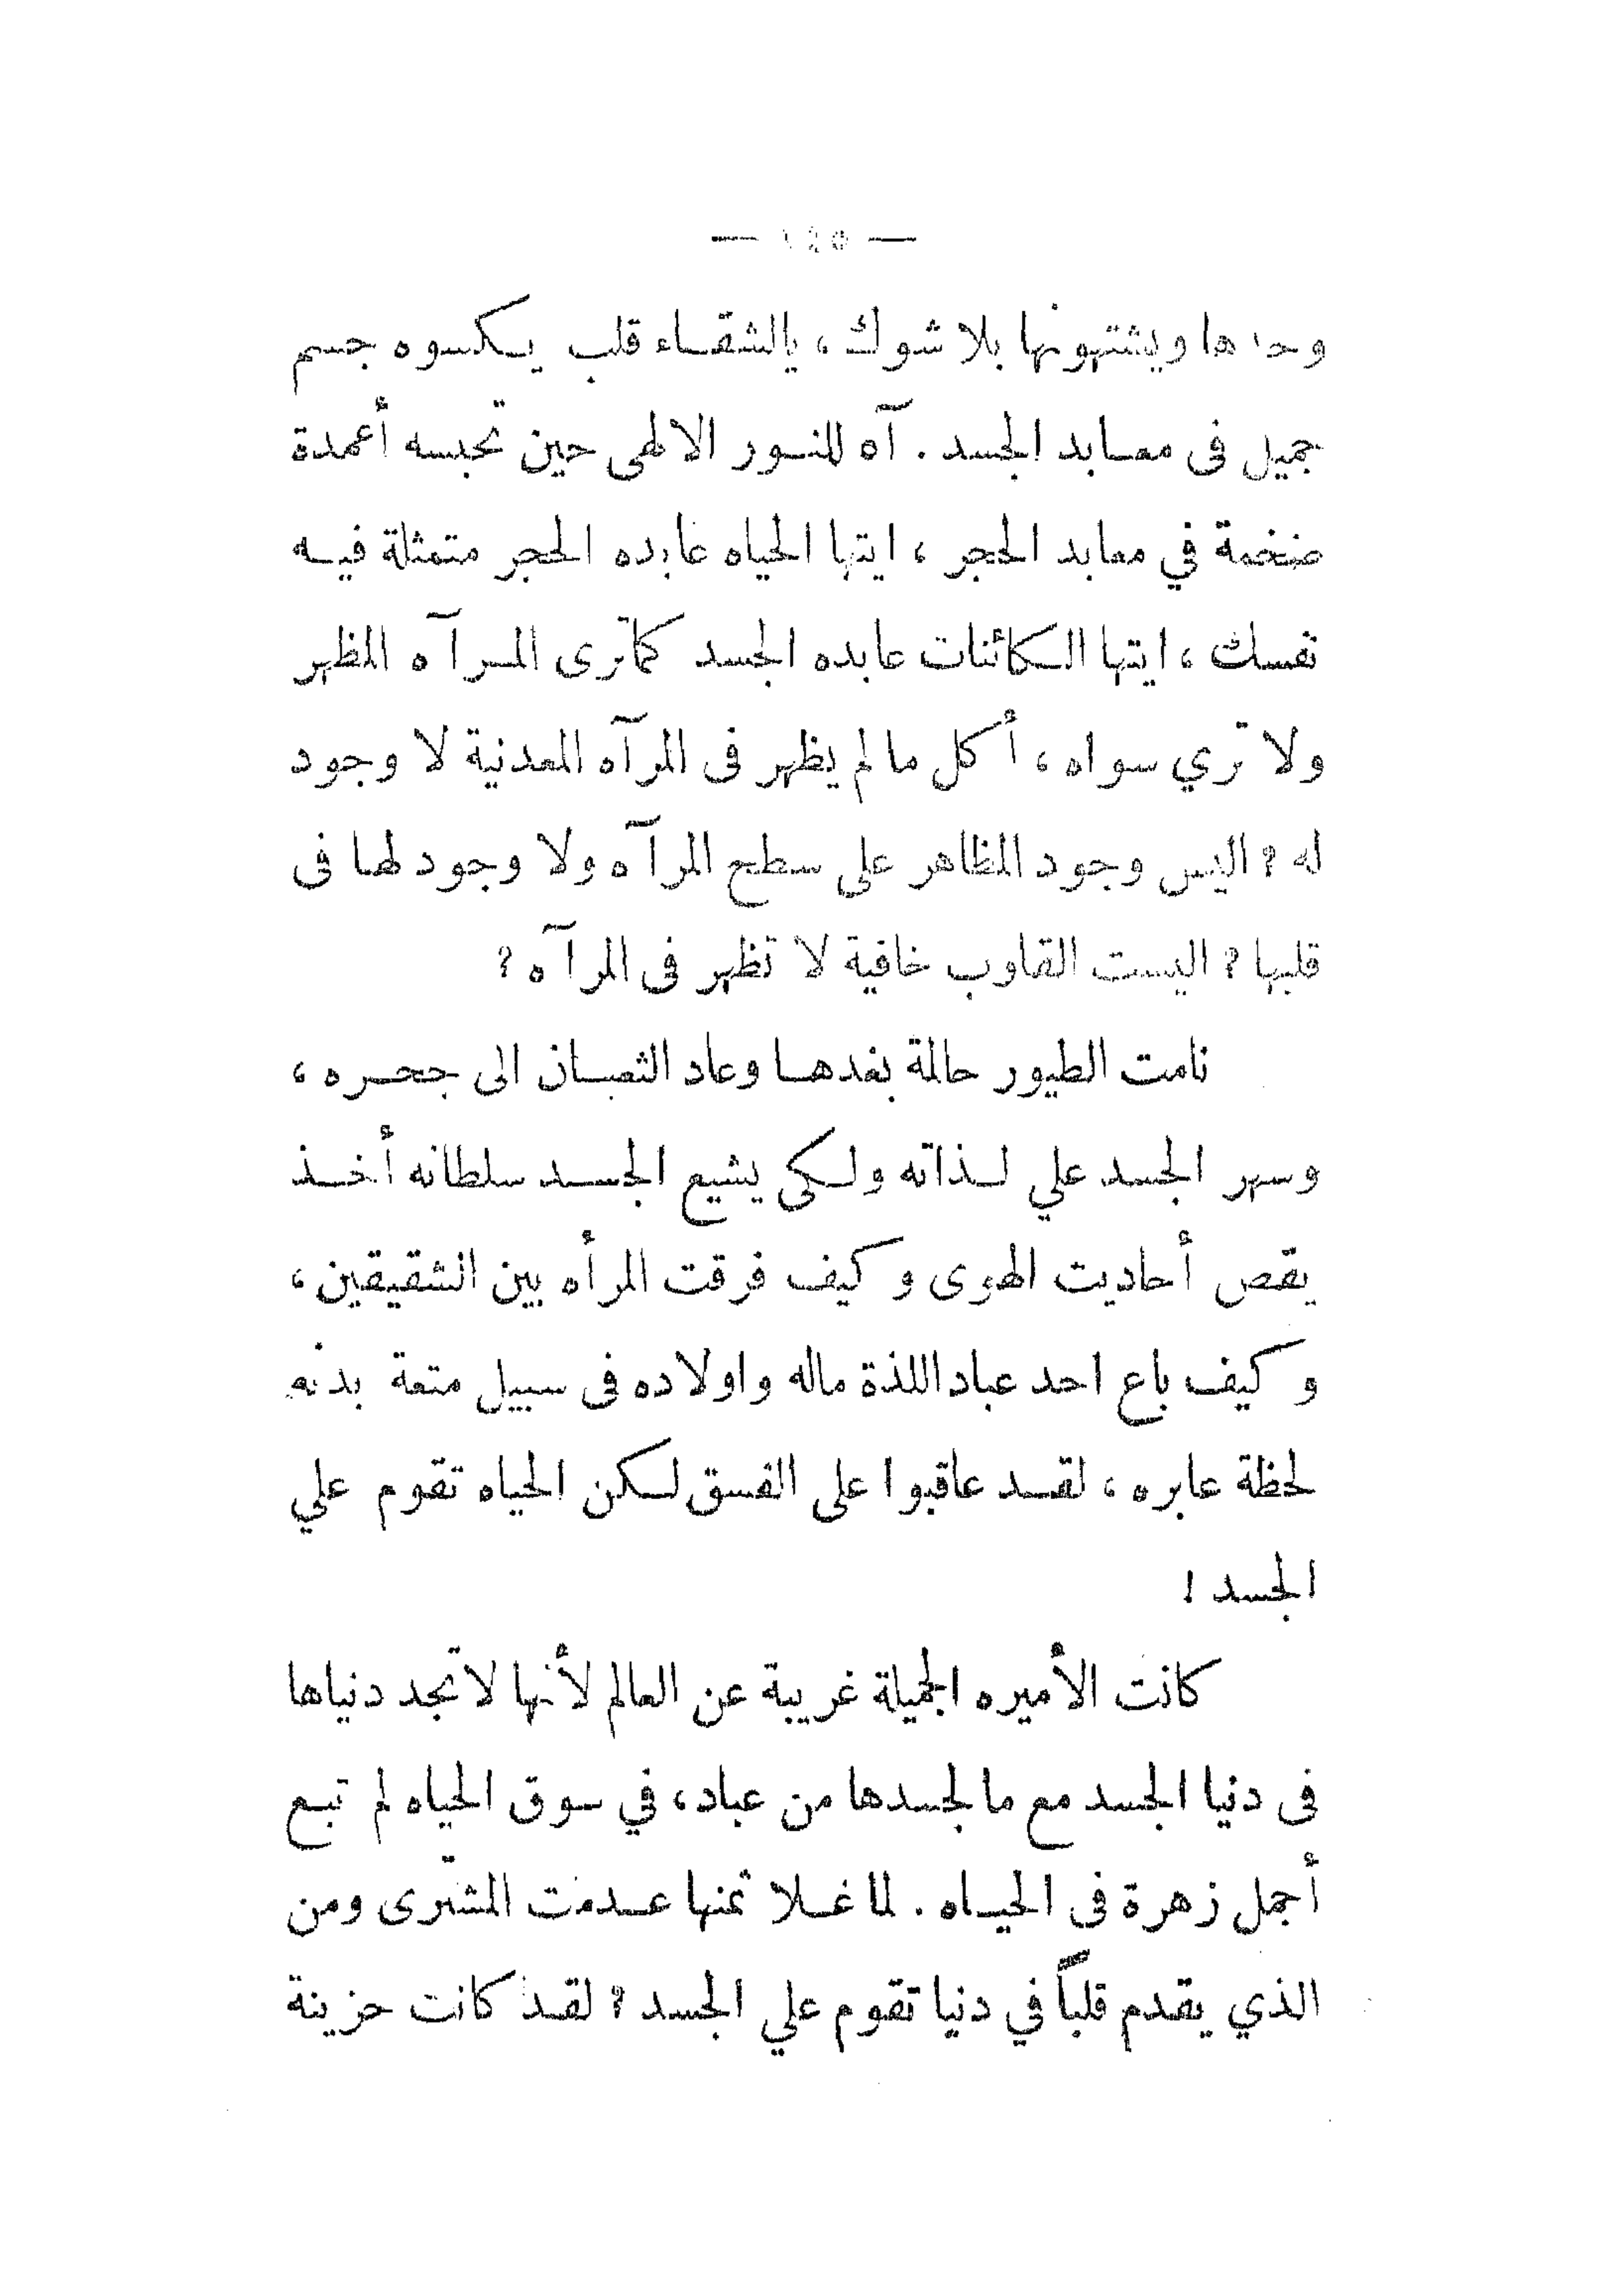 — ١٤٥ —
ويشتهونها بلا شوك ، يالشقاء قلب يكسوه جسم
جميل فى معابد الجسد . آه للنور الالهى حين تحبسه أعمدة
ضخمة في معابد الحجر ، ايتها الحياه عابده الحجر متمثلة فيه
نفسك ، ايتها الكائنات عابده الجسد كما ترى المرآه المظهر
ولا تري سواه ، أكل مالم يظهر فى المرآه المعدنية لا وجود
له ? اليس وجود المظاهر على سطح المرآه ولا وجود لها فى
قلبها ? اليست القلوب خافية لا تظهر فى المرآه ?
نامت الطيور حالمة بغدها وعاد الثعبان الى جحره ،
وسهر الجسد علي لذاته ولكى يشيع الجسد سلطانه أخذ
يقص أحاديث الهوى وكيف فرقت المرأه بين الشقيقين ،
وكيف باع احد عباد اللذة ماله واولاده فى سبيل متعة بدنه
لحظة عابره ، لقد عاقبوا على الفسق لكن الحياه تقوم علي
الجسد !
كانت الأميره الجميلة غريبة عن العالم لأنها لا تجد دنياها
فى دنيا الجسد مع ما لجسدها من عباد ، في سوق الحياه لم تبع
أجمل زهرة فى الحياه . لما غلا ثمنها عدمت المشترى ومن
الذي يقدم قلباً في دنيا تقوم علي الجسد ? لقد كانت حزينة